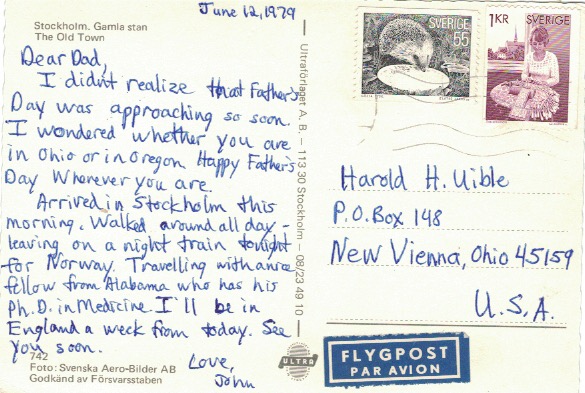 June 12, 1979
Stockholm. Gamla stan
The Old Town
Dear Dad,
I didn't realize that Father's
Day was approaching so soon.
I wondered whether you are
in Ohio or in Oregon. Happy Father's
Day Wherever you are.
Arrived in Stockholm this
morning. Walked around all day -
leaving on a night train tonight
for Norway. Travelling with a nice
fellow from Alabama who has his
Ph.D. in Medicine. I'll be in
England a week from today. See
you soon.
Love,
John
742
Foto: Svenska Aero-Bilder AB
Godkänd av Försvarsstaben
Ultraförlaget A. B. — 113 30 Stockholm — 08/23 49 10
ULTRA
SVERIGE
55
1KR SVERIGE
Harold H. Uible
P.O. Box 148
New Vienna, Ohio 45159
U.S.A.
FLYGPOST
PAR AVION